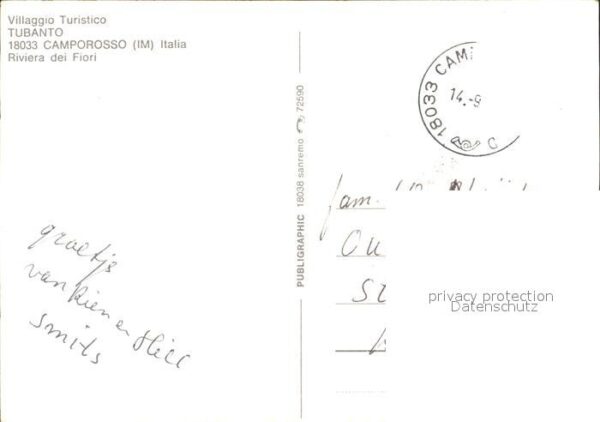 Villaggio Turistico
TUBANTO
18033 CAMPOROSSO (IM) Italia
Riviera dei Fiori
PUBLIGRAPHIC 18038 sanremo 72590
18033 CAM
14.-9
C
groetjs
van Rien en
Smits
fam.
OU
ST
privacy protection
Datenschutz